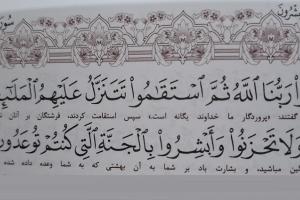 ا رَبُّنَا ٱللَّهُ ثُمَّ ٱسْتَقَٰمُوا۟ تَتَنَزَّلُ عَلَيْهِمُ ٱلْمَلَٰٓئِ
گفتند: «پروردگار ما خداوند یگانه است.» سپس استقامت کردند، فرشتگان بر آنان
وَلَا تَحْزَنُوا۟ وَأَبْشِرُوا۟ بِٱلْجَنَّةِ ٱلَّتِى كُنتُمْ تُوعَدُو
گین مباشید، و بشارت باد بر شما به آن بهشتی که به شما وعده داده شده